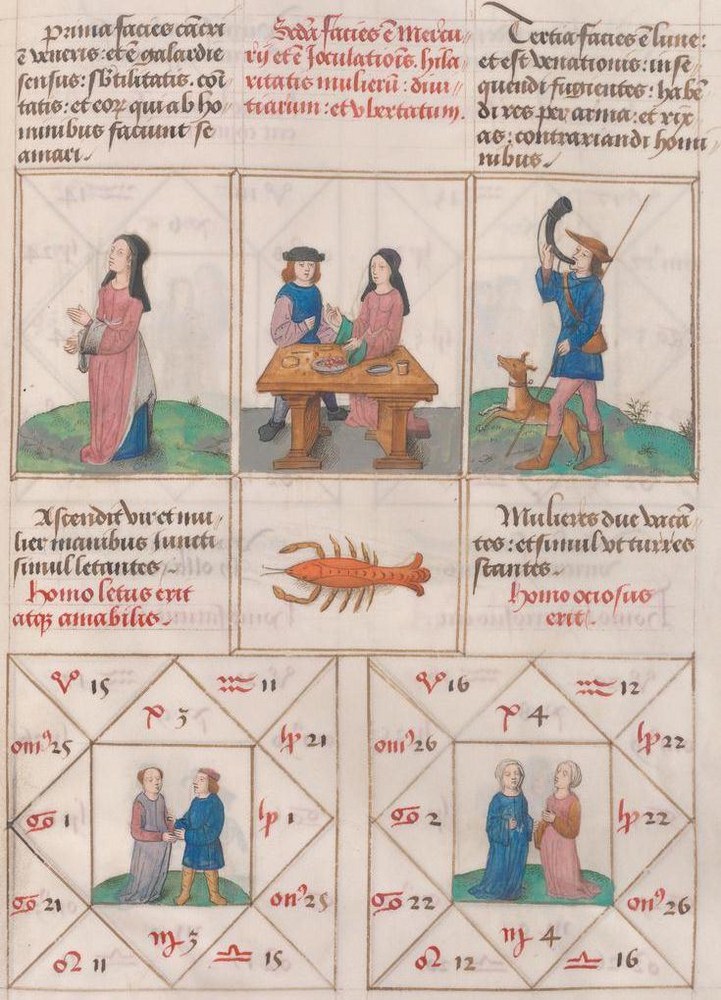 Prima facies cācri
ē veneris: et ē galardie
sensus: sbtilitatis. comi
tatis: et eoʀ qui ab ho
minibus faciunt se
amari.
Secda facies ē Mercu
rij et ē Joculationis. hila
ritatis mulierū: diui
tiarum: et vbertatum.
Tertia facies ē lune:
et est venationis: in se
quendi fugientes: habē
di res per arma: et rix
as: contrariandi homi
nibus.
Ascendit vir et mu
lier manibus iuncti
simul letantes.
Homo letus erit
atqz amabilis.
Mulieres due vacā
tes: et simul vt turres
stantes.
Homo ociosus
erit.
♈ 15 ♒ 11
♓ 3
omꝰ 25 ♑ 21
♋ 1 ♑ 1
♋ 21 omꝰ 25
♍ 3
♌ 11 ♎ 15
♈ 16 ♒ 12
♓ 4
omꝰ 26 ♑ 22
♋ 2 ♑ 22
♋ 22 omꝰ 26
♍ 4
♌ 12 ♎ 16